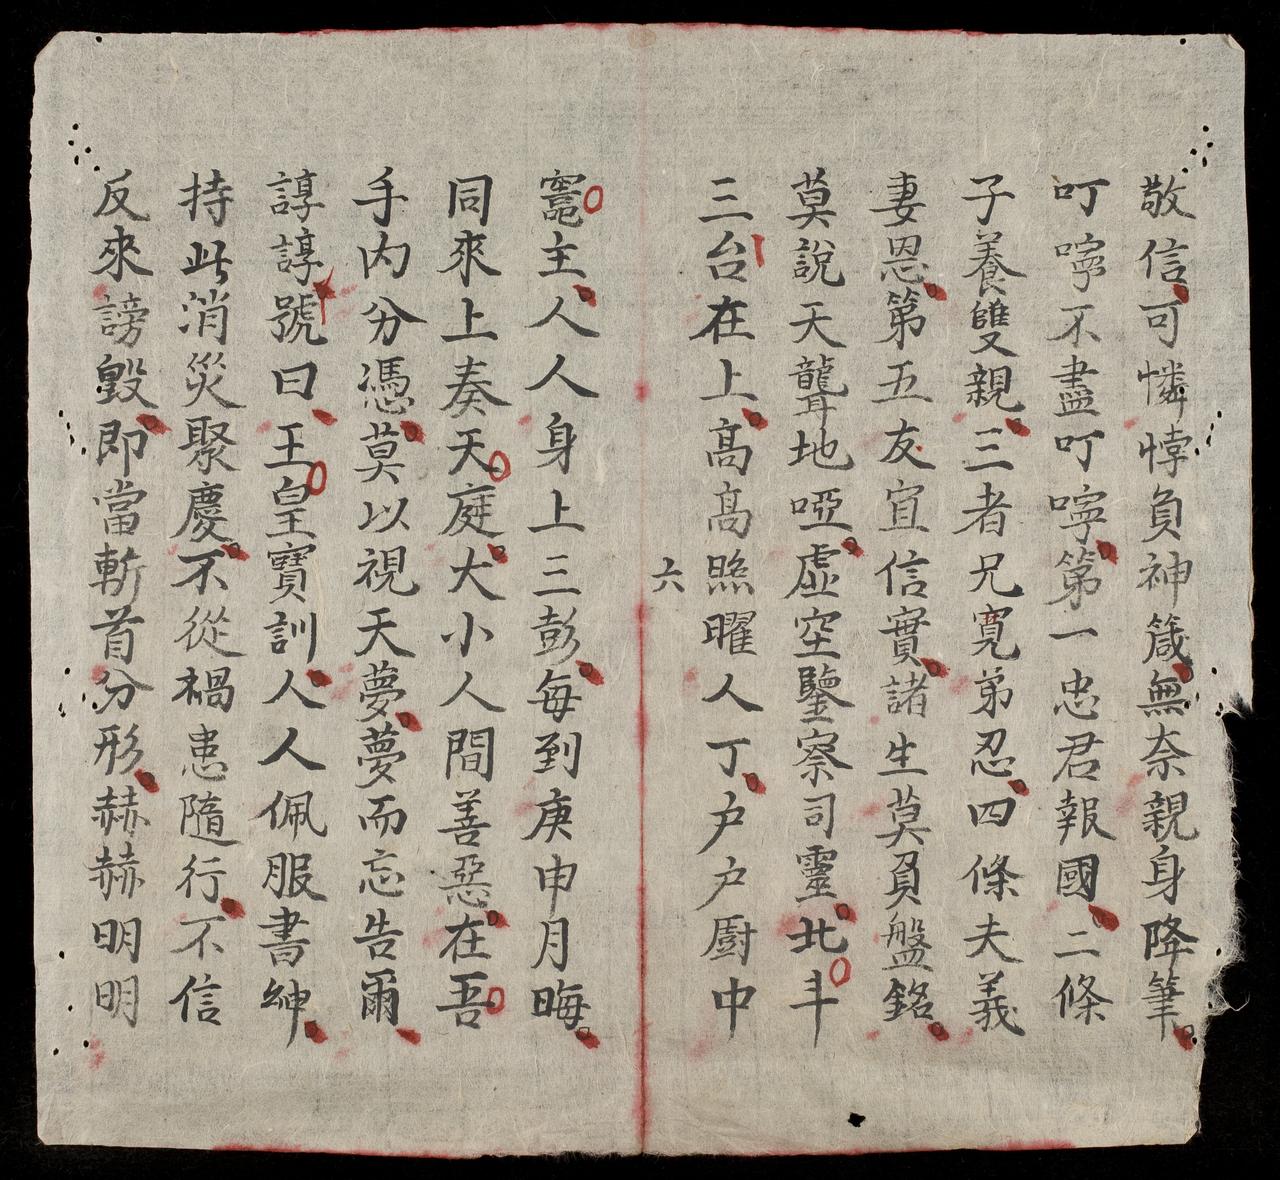 敬信可憐悖負神箴無奈親身降筆
叮嚀不盡叮嚀第一忠君報國二條
子養雙親三者兄寬弟忍四條夫義
妻恩第五友宜信實諸生莫負盤銘
莫說天聾地啞虛空鑒察司靈北斗
三台在上高高煦曜人丁户户厨中
六
竈主人人身上三彭每到庚申月晦
同來上奏天庭大小人間善惡在吾
手内分憑莫以視天夢夢而忘告爾
諄諄號曰王皇寶訓人人佩服書紳
持此消災聚慶不從禍患隨行不信
反來謗毀即當斬首分形赫赫明明